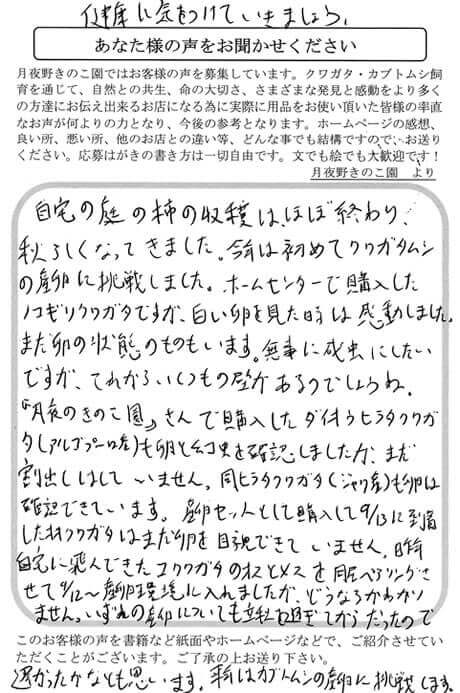 健康に気をつけていきましょう。
あなた様の声をお聞かせください
月夜野きのこ園ではお客様の声を募集しています。クワガタ・カブトムシ飼
育を通じて、自然との共生、命の大切さ、さまざまな発見と感動をより多く
の方達にお伝え出来るお店になる為に実際に用品をお使い頂いた皆様の率直
なお声が何よりの力となり、今後の参考となります。ホームページの感想、
良い所、悪い所、他のお店との違い等、どんな事でも結構ですので、お送り
ください。応募はがきの書き方は一切自由です。文でも絵でも大歓迎です！
月夜野きのこ園　より
自宅の庭の柿の収穫は、ほぼ終わり、
秋らしくなってきました。今年は初めてクワガタムシ
の産卵に挑戦しました。ホームセンターで購入した
ノコギリクワガタですが、白い卵を見た時は感動しました。
まだ卵の状態のものもいます。無事に成虫にしたい
ですが、これからいくつもの壁があるのでしょうね。
『月夜のきのこ園』さんで購入したダイオウヒラタクワガ
タ(アルゴプーロ産)も卵と幼虫を確認しましたが、まだ
割出しはしていません。同ヒラタクワガタ(ジャワ産)も卵は
確認できています。産卵セットとして購入して9/13に到着
したオオクワガタはまだ卵を目視できていません。昨年
自宅に飛んできたコクワガタのオスとメスを同居ペアリングさ
せて9/12〜産卵環境に入れましたが、どうなるかわかり
ません。いずれの産卵についても立秋過ぎてからだったので
このお客様の声を書籍など紙面やホームページなどで、ご紹介させてい
ただくことがございます。ご了承の上お送り下さい。
遅かったかなとも思います。来年はカブトムシの産卵に挑戦します。